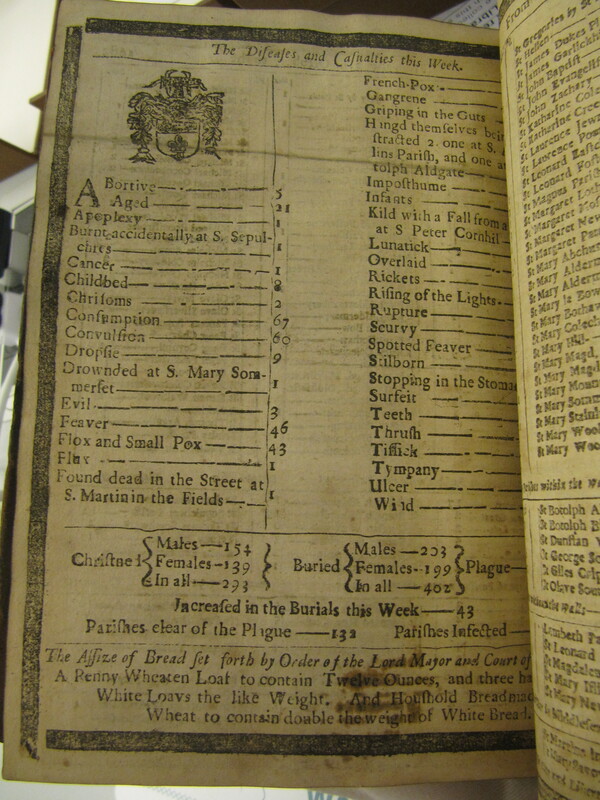 The Diseases and Casualties this Week.
Abortive 5
Aged 21
Apoplexy 1
Burnt accidentally at S. Sepul-
chres 1
Cancer 1
Childbed 8
Chrisoms 2
Consumption 67
Convulsion 60
Dropsie 9
Drownded at S. Mary Som-
merset 1
Evil 3
Feaver 46
Flox and Small Pox 43
Flux 1
Found dead in the Street at
S. Martin in the Fields 1
French-Pox
Gangrene
Griping in the Guts
Hangd themselves bei
stracted 2. one at S.
lins Parish, and one a
tolph Aldgate
Imposthume
Infants
Kild with a Fall from a
at S Peter Cornhil
Lunatick
Overlaid
Rickets
Rising of the Lights
Rupture
Scurvy
Spotted Feaver
Stilborn
Stopping in the Stoma
Surfeit
Teeth
Thrush
Tissick
Tympany
Ulcer
Wind
Christned Males 154 Females 139 In all 293 Buried Males 203 Females 199 In all 402 Plague
Increased in the Burials this Week 43
Parishes clear of the Plague 132 Parishes Infected
The Assize of Bread set forth by Order of the Lord Major and Court of
A Penny Wheaten Loaf to contain Twelve Ounces, and three ha
White Loavs the like Weight. And Houshold Bread mad
Wheat to contain double the weight of White Bread.
From
St Hellen
St James Dukes Pl
St James Garlickhi
St John Baptist
St John Evangelist
St John Zachary
St Katharine Cole
St Katharine Cree
St Laurence Jew
St Laurence Pou
St Leonard Eastc
St Leonard Fost
St Magnus Paris
St Margaret Loth
St Margaret Mos
St Margaret New
St Margaret Patt
St Mary Abchur
St Mary Alderm
St Mary Alderm
St Mary le Bow
St Mary Bothaw
St Mary Colech
St Mary Hill
St Mary Magd.
St Mary Magd
St Mary Moun
St Mary Somm
St Mary Stain
St Mary Wool
St Mary Wool
St Botolph A
St Botolph B
St Dunstan
St George So
St Giles Crip
St Olave Sou
Lambeth Pa
St Leonard
St Magdalen
St Mary Isli
St Mary New